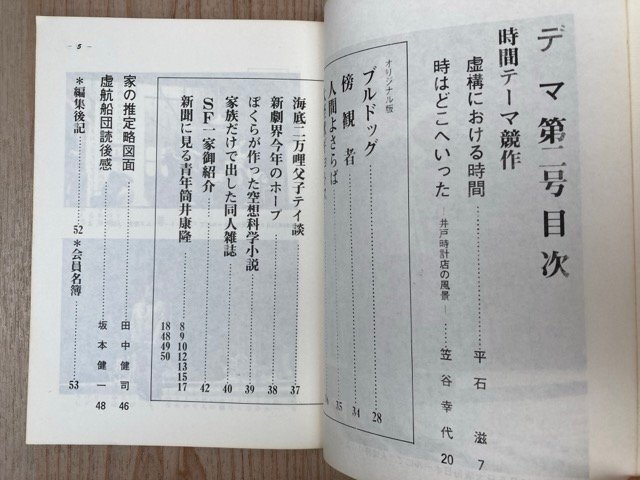 デマ 第二号 目次
時間テーマ競作
虚構における時間……平石 滋 7
時はどこへいった ―井戸時計店の風景― 笠谷幸代 20
オリジナル版
ブルドッグ……28
傍観者……34
人間よさらば……35
海底二万哩父子テイ談……37
新劇界今年のホープ……38
ぼくらが作った空想科学小説……39
家族だけで出した同人雑誌……40
SF一家御紹介……42
新聞に見る青年筒井康隆……8 9 10 12 13 15 17
18 48 49 50
家の推定略図面……田中健司 46
虚航船団読後感……坂本健一 48
*編集後記……52
*会員名簿……53
- 5 -